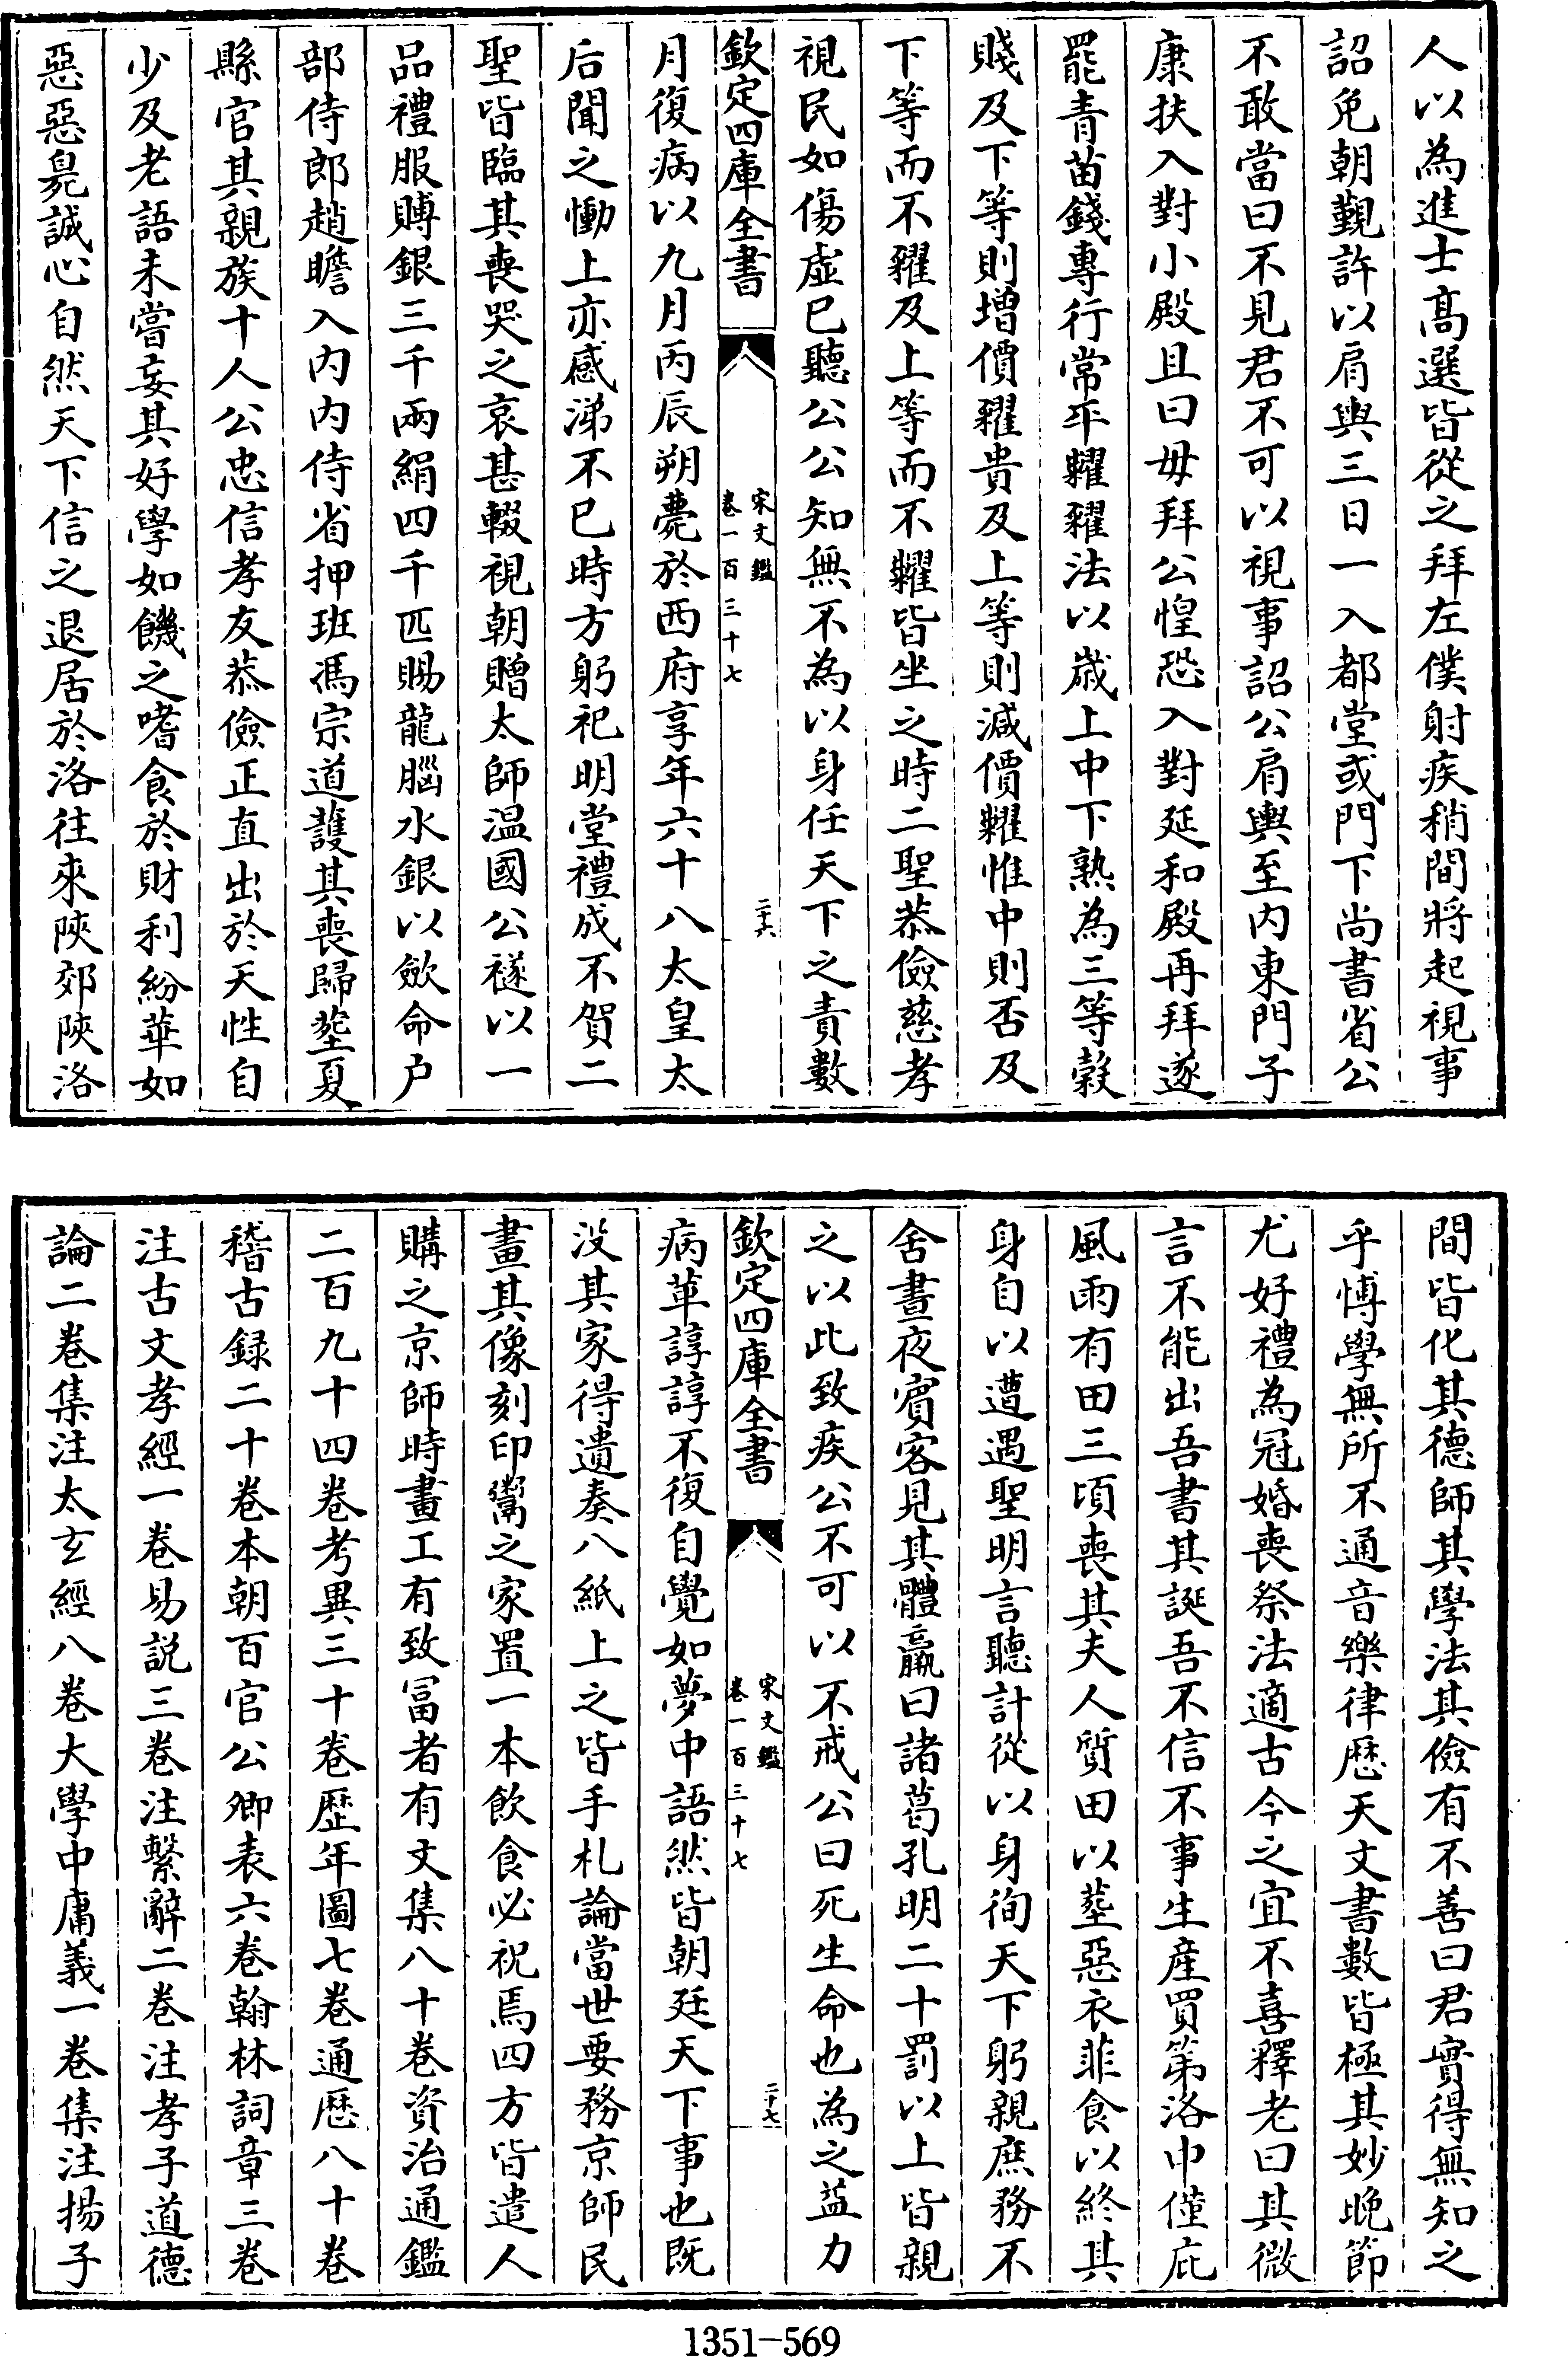 人以為進士髙選皆從之拜左僕射疾稍間將起視事
詔免朝覲許以肩輿三日一入都堂或門下尚書省公
不敢當曰不見君不可以視事詔公肩輿至内東門子
康扶入對小殿且曰毋拜公惶恐入對延和殿再拜遂
罷青苗錢專行常平糶糴法以嵗上中下熟為三等榖
賤及下等則增價糴貴及上等則減價糶惟中則否及
下等而不糴及上等而不糶皆坐之時二聖恭儉慈孝
視民如傷虚已聽公公知無不為以身任天下之責數
欽定四庫全書
宋文鑑
卷一百三十七
二十六
月復病以九月丙辰朔薨於西府享年六十八太皇太
后聞之慟上亦感涕不已時方躬祀明堂禮成不賀二
聖皆臨其喪哭之哀甚輟視朝贈太師温國公襚以一
品禮服賻銀三千兩絹四千匹賜龍腦水銀以歛命户
部侍郎趙瞻入内内侍省押班馮宗道護其喪歸塟夏
縣官其親族十人公忠信孝友恭儉正直出於天性自
少及老語未嘗妄其好學如饑之嗜食於財利紛華如
惡惡臭誠心自然天下信之退居於洛往來陜郊陜洛
間皆化其德師其學法其儉有不善曰君實得無知之
乎愽學無所不通音樂律厯天文書數皆極其妙晚節
尤好禮為冠婚喪祭法適古今之宜不喜釋老曰其微
言不能出吾書其誕吾不信不事生産買第洛中僅庇
風雨有田三頃喪其夫人質田以塟惡衣菲食以終其
身自以遭遇聖明言聽計從以身徇天下躬親庶務不
舍晝夜賓客見其體羸曰諸葛孔明二十罰以上皆親
之以此致疾公不可以不戒公曰死生命也為之益力
欽定四庫全書
宋文鑑
卷一百三十七
二十七
病革諄諄不復自覺如夢中語然皆朝廷天下事也既
没其家得遺奏八紙上之皆手札論當世要務京師民
畫其像刻印鬻之家置一本飲食必祝焉四方皆遣人
購之京師時畫工有致冨者有文集八十卷資治通鑑
二百九十四卷考異三十卷歴年圖七卷通厯八十卷
稽古録二十卷本朝百官公卿表六卷翰林詞章三卷
注古文孝經一卷易説三卷注繫辭二卷注孝子道德
論二卷集注太玄經八卷大學中庸義一卷集注揚子
1351-569